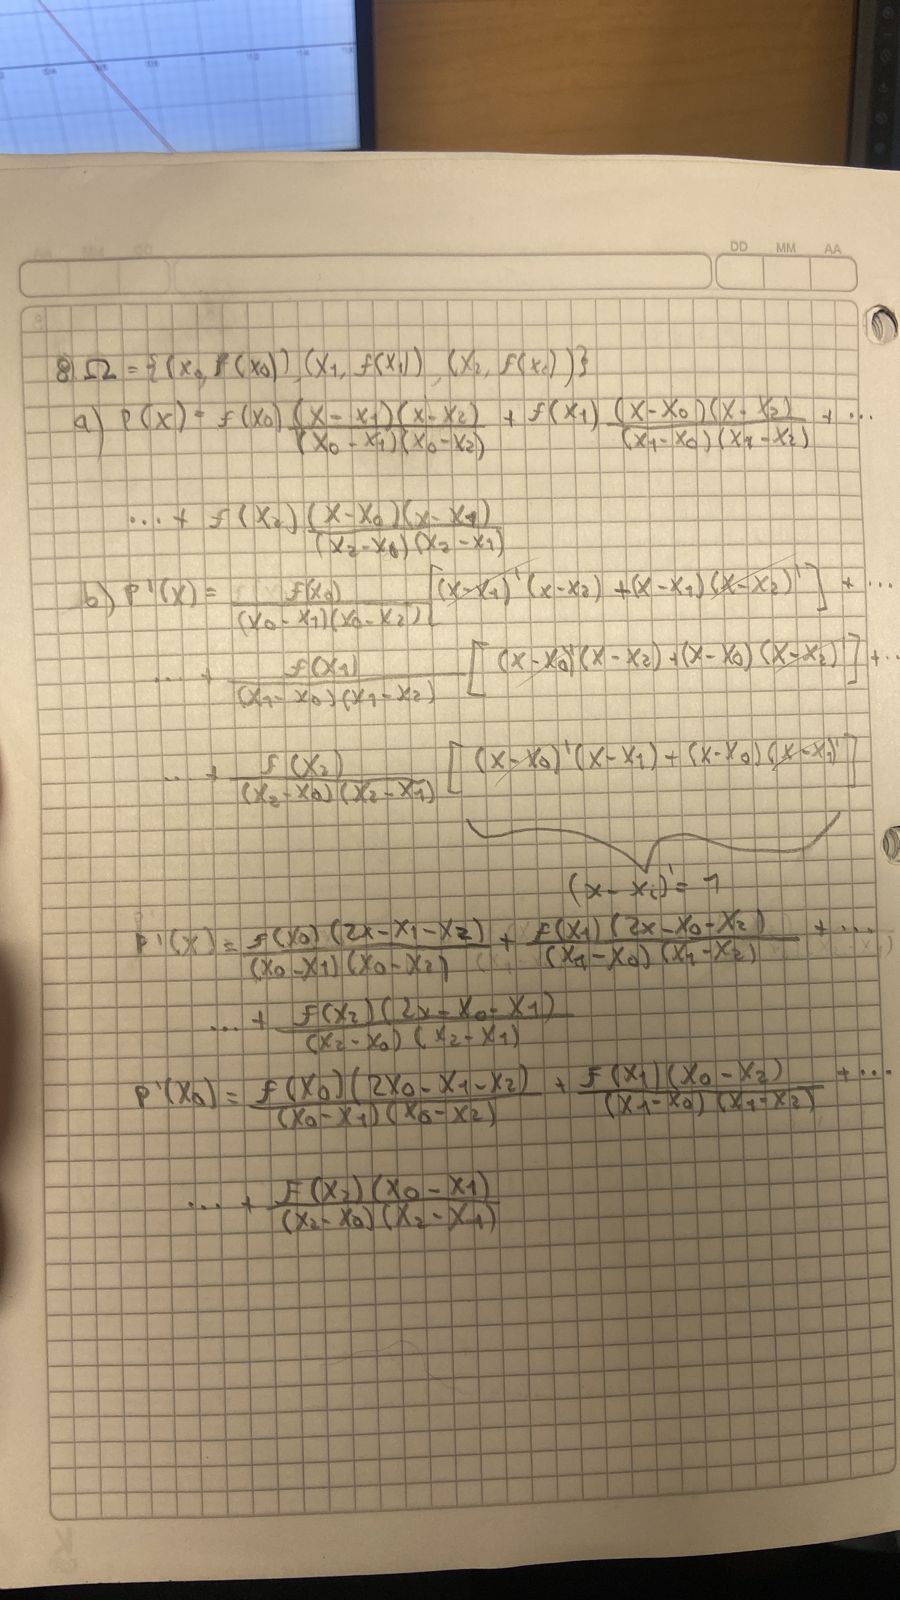 DD MM AA
8) Ω = {(x₀, f(x₀)), (x₁, f(x₁)), (x₂, f(x₂))}
a) P(x) = f(x₀) (x-x₁)(x-x₂) / (x₀-x₁)(x₀-x₂) + f(x₁) (x-x₀)(x-x₂) / (x₁-x₀)(x₁-x₂) + ...
... + f(x₂) (x-x₀)(x-x₁) / (x₂-x₀)(x₂-x₁)
b) P'(x) = f(x₀) / (x₀-x₁)(x₀-x₂) [(x-x₁)'(x-x₂) + (x-x₁)(x-x₂)'] + ...
... + f(x₁) / (x₁-x₀)(x₁-x₂) [(x-x₀)'(x-x₂) + (x-x₀)(x-x₂)'] + ...
... + f(x₂) / (x₂-x₀)(x₂-x₁) [(x-x₀)'(x-x₁) + (x-x₀)(x-x₁)']
(x-xᵢ)' = 1
P'(x) = f(x₀)(2x-x₁-x₂) / (x₀-x₁)(x₀-x₂) + f(x₁)(2x-x₀-x₂) / (x₁-x₀)(x₁-x₂) + ...
... + f(x₂)(2x-x₀-x₁) / (x₂-x₀)(x₂-x₁)
P'(x₀) = f(x₀)(2x₀-x₁-x₂) / (x₀-x₁)(x₀-x₂) + f(x₁)(x₀-x₂) / (x₁-x₀)(x₁-x₂) + ...
... + f(x₂)(x₀-x₁) / (x₂-x₀)(x₂-x₁)